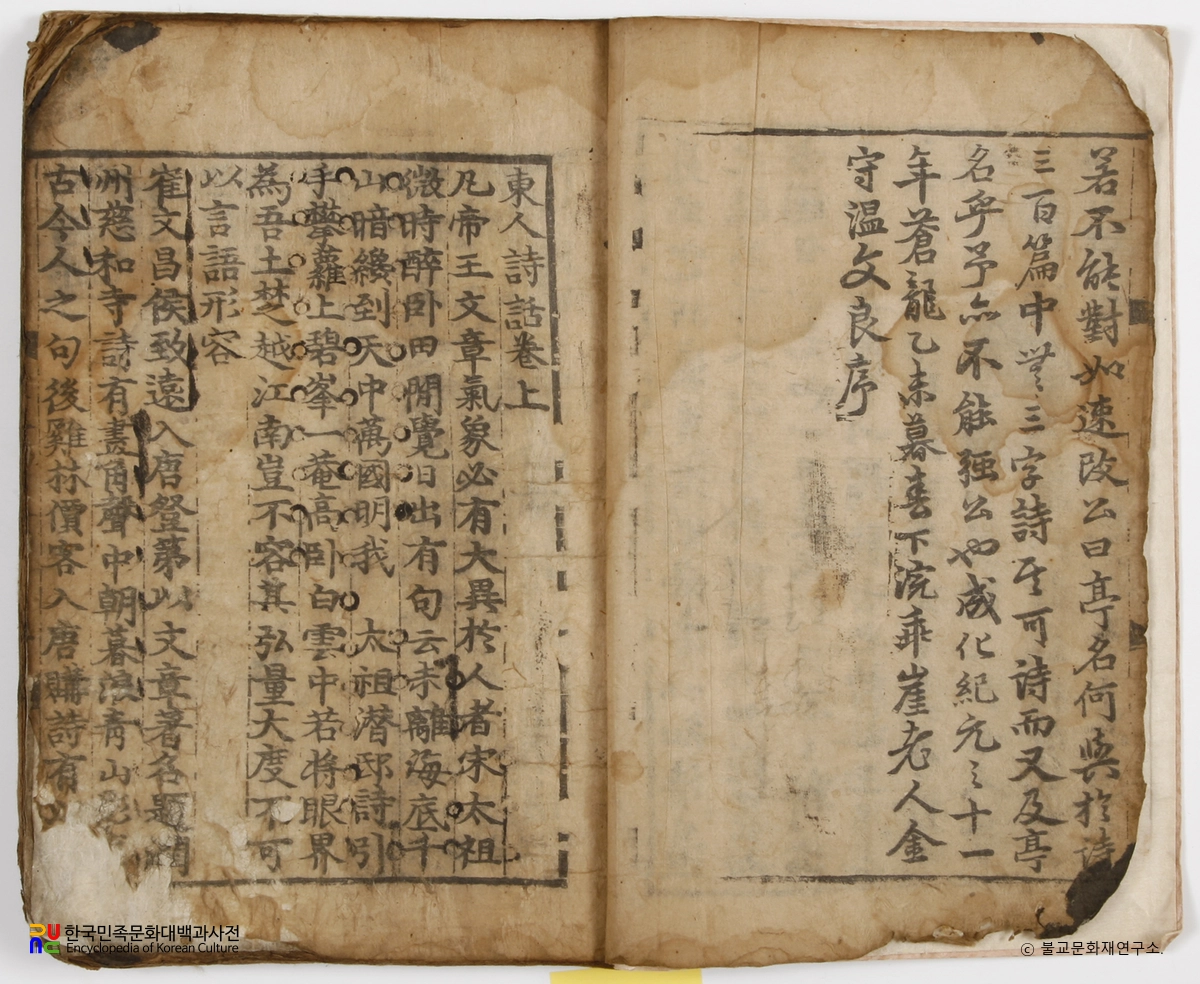 若不能對如速改公曰亭名何與於詩
三百篇中無三字詩至可詩而又及亭
名乎予亦不能强公也成化紀元之十一
年蒼龍乙未暮春下浣乖崖老人金
守溫文良序
東人詩話卷上
凡帝王文章氣象必有大異於人者宋太祖
微時醉卧田間覺日出有句云未離海底千
山暗纔到天中萬國明我 太祖潜邸詩引
手攀蘿上碧峯一菴高卧白雲中若将眼界
為吾土楚越江南豈不容其弘量大度不可
以言語形容
崔文昌侯致遠入唐登第以文章著名題潤
州慈和寺詩有畫角聲中朝暮浪靑山
古今人之句後雞林價客入唐購詩有
한국민족문화대백과사전
Encyclopedia of Korean Culture
ⓒ 불교문화재연구소.